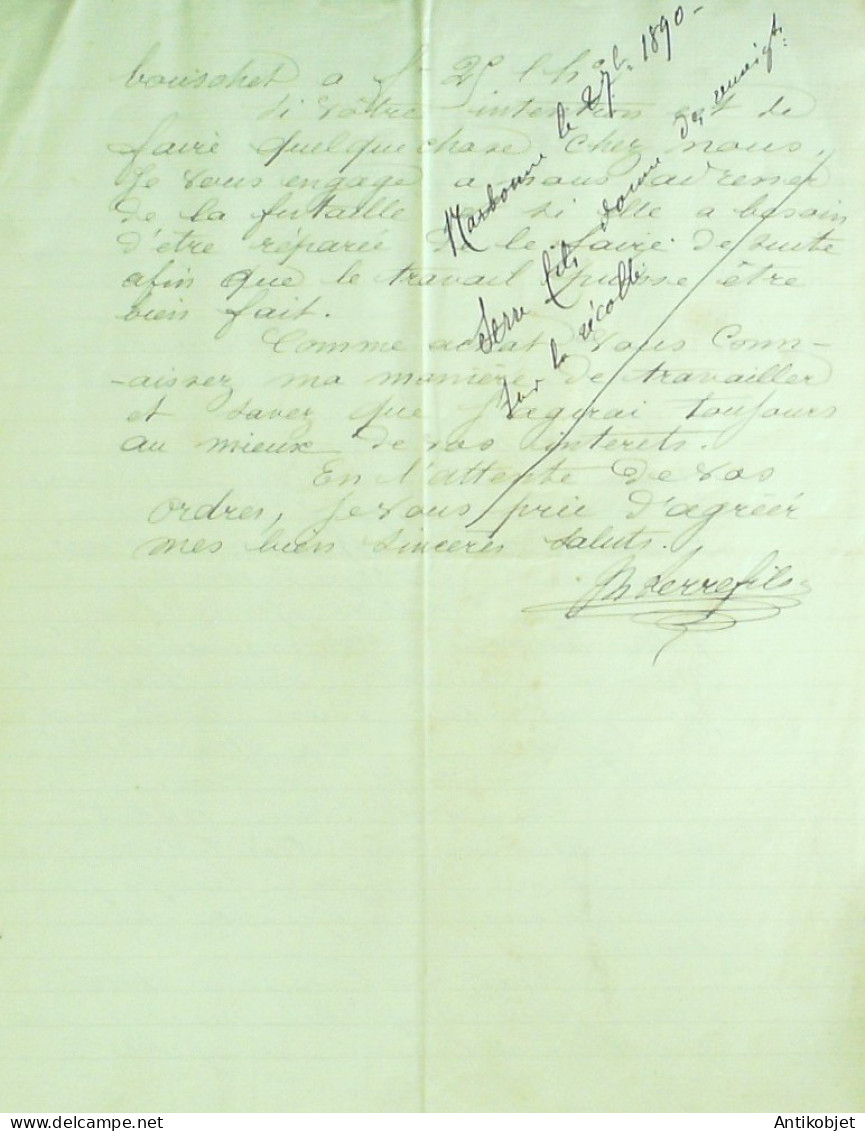 bouschet a fr 25 l'ho
Si vôtre intention est de
faire quelque chose chez nous,
Je vous engage a nous adresser
de la futaille et si elle a besoin
d'être réparée de le faire de suite
afin que le travail puisse être
bien fait.
Comme achat vous conn-
-aissez ma manière de travailler
et savez que j'agirai toujours
au mieux de vos interets.
En l'attente de vos
ordres, je vous prie d'agréer
mes bien sincères saluts.
Serre fils
Narbonne le 2 7bre 1890-
Serre fils donne des renseigts
sur la récolte
Antikobjet / Delcampe.net